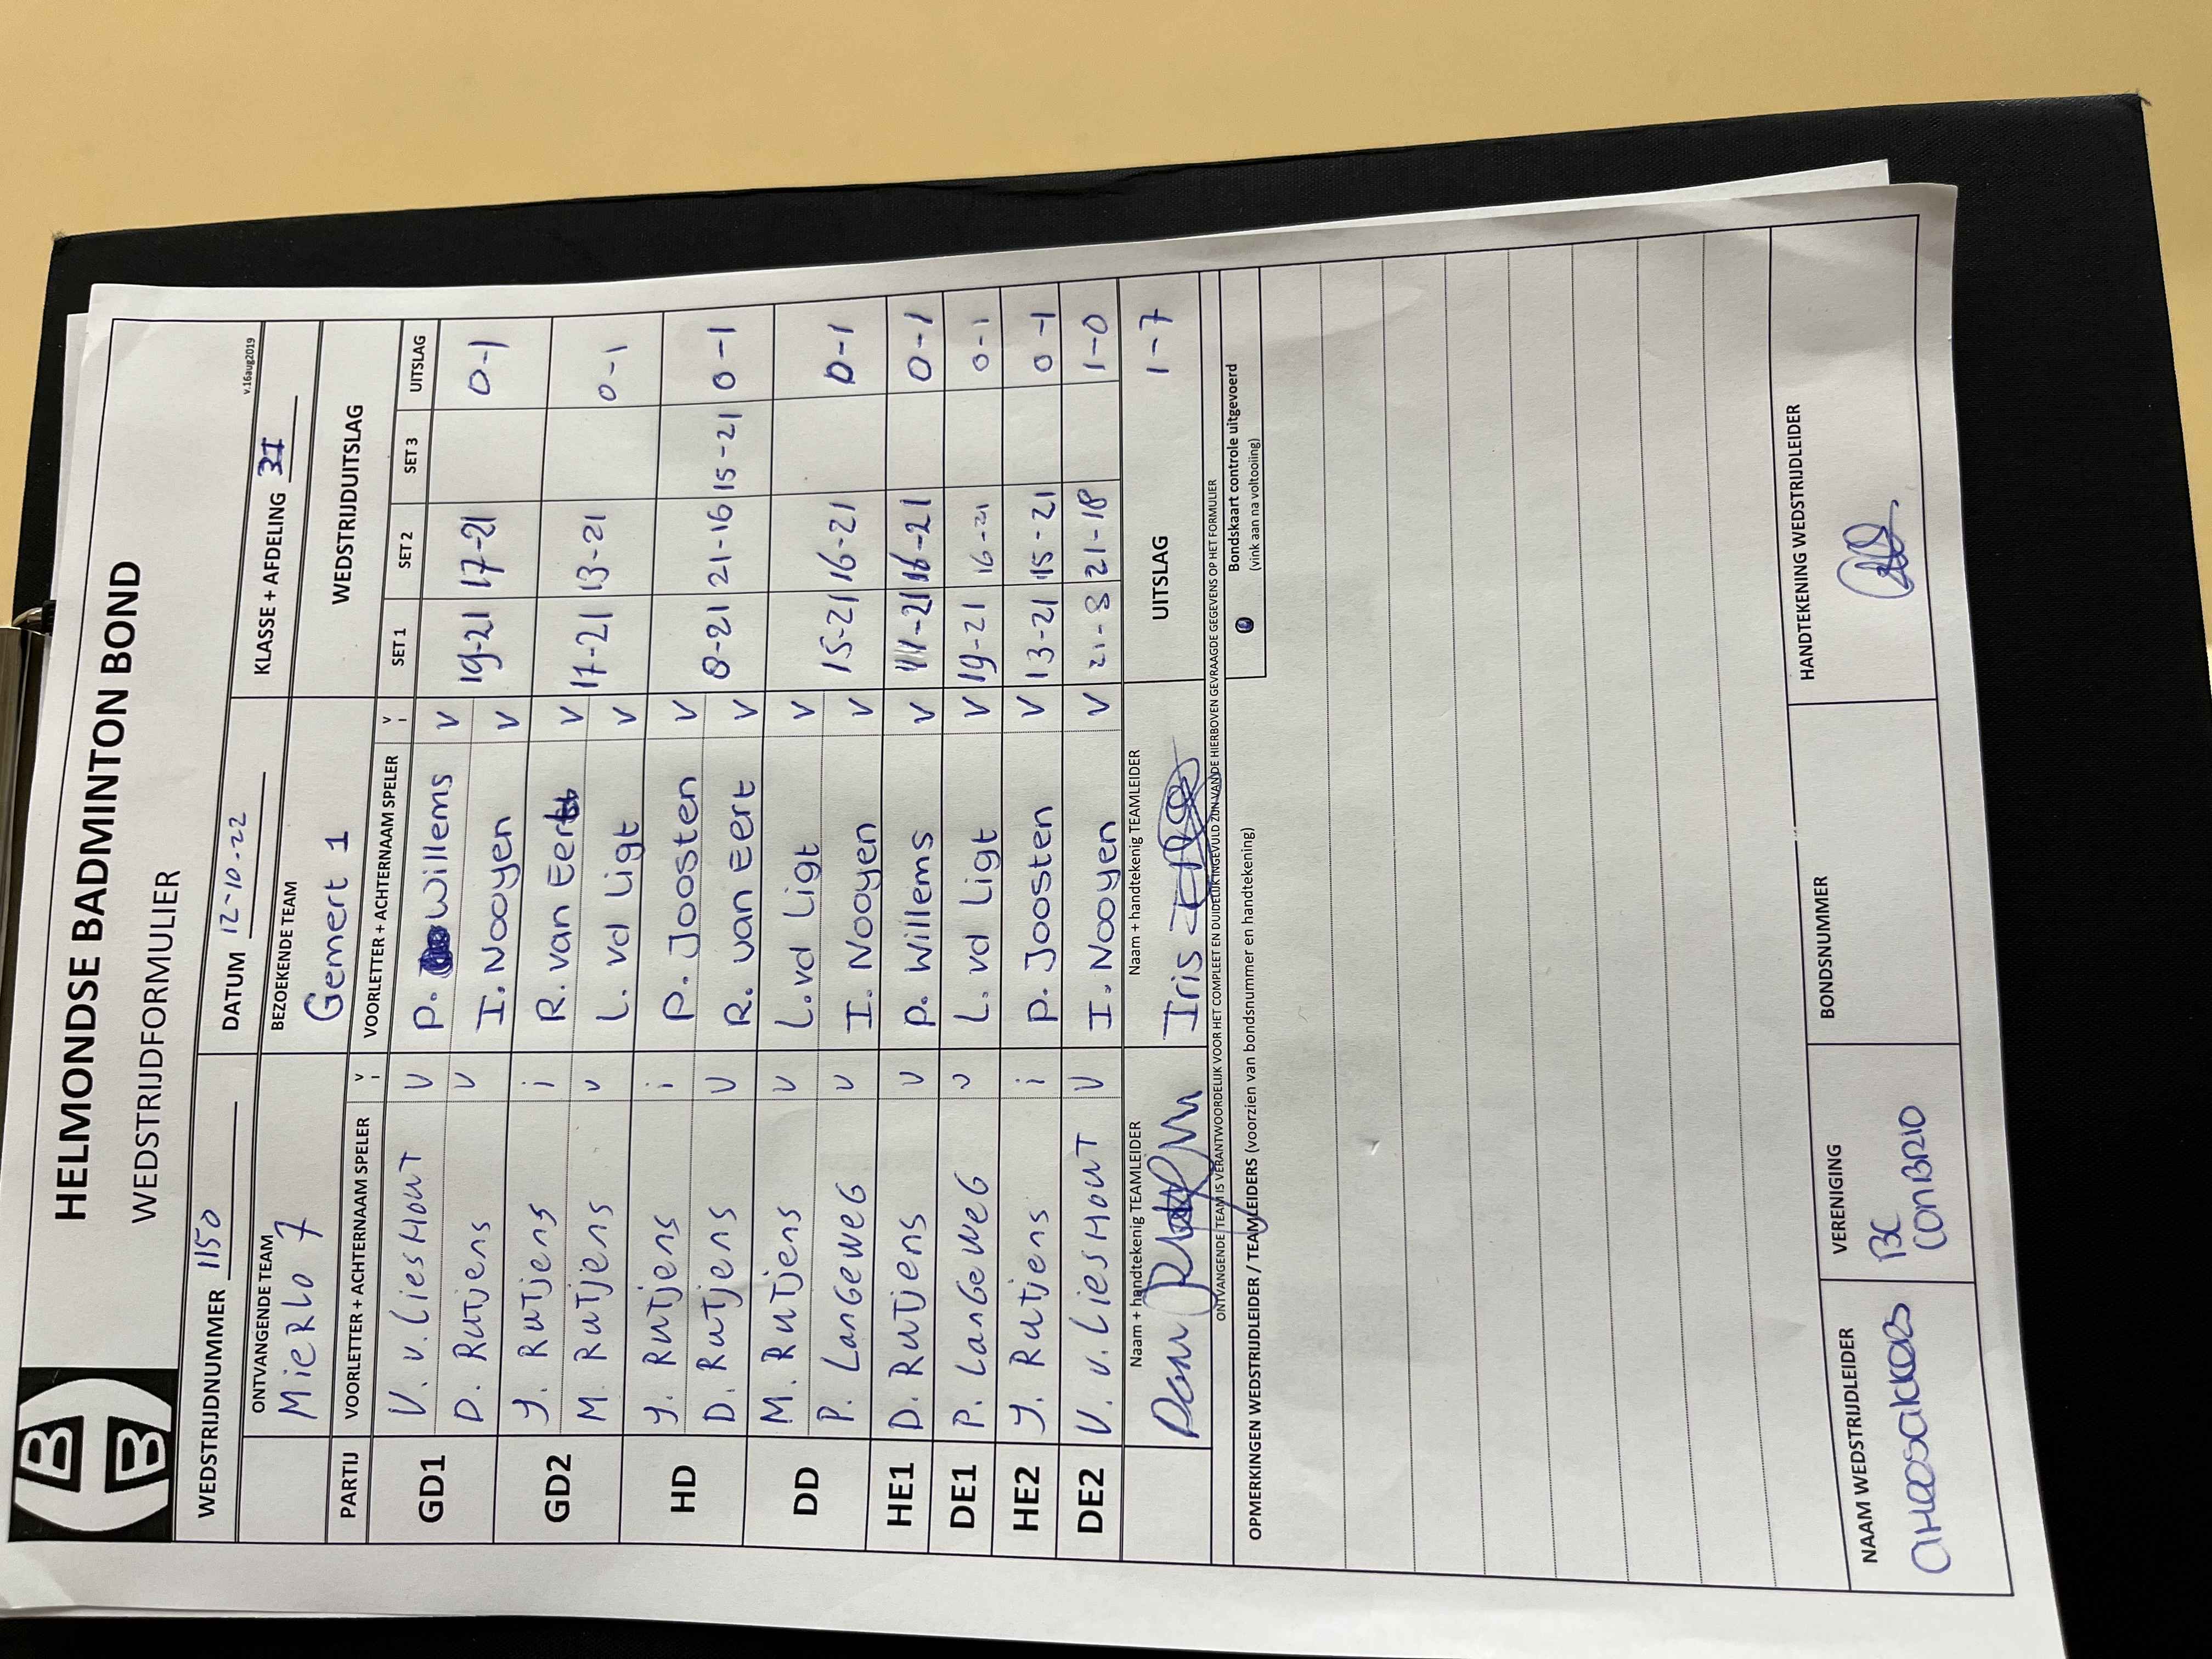 HELMONDSE BADMINTON BOND
WEDSTRIJDFORMULIER
v.16aug2019
WEDSTRIJDNUMMER 1150 DATUM 12-10-22 KLASSE + AFDELING 3I
ONTVANGENDE TEAM BEZOEKENDE TEAM WEDSTRIJDUITSLAG
Mierlo 7 Gemert 1
PARTIJ VOORLETTER + ACHTERNAAM SPELER V I VOORLETTER + ACHTERNAAM SPELER V I SET 1 SET 2 SET 3 UITSLAG
GD1 V. v. Lieshout V P. Willems V 19-21 17-21 0-1
D. Rutjens V I. Nooyen V
GD2 J. Rutjens i R. van Eert V 17-21 13-21 0-1
M. Rutjens v L. vd Ligt V
HD J. Rutjens i P. Joosten V 8-21 21-16 15-21 0-1
D. Rutjens V R. van Eert V
DD M. Rutjens V L. vd Ligt V 15-21 16-21 0-1
P. Langeweg V I. Nooyen V
HE1 D. Rutjens V P. Willems V 11-21 16-21 0-1
DE1 P. Langeweg V L. vd Ligt V 19-21 16-21 0-1
HE2 J. Rutjens i P. Joosten V 13-21 15-21 0-1
DE2 V. v. Lieshout V I. Nooyen V 21-8 21-18 1-0
Naam + handtekenig TEAMLEIDER Naam + handtekenig TEAMLEIDER UITSLAG 1-7
Iris
ONTVANGENDE TEAM IS VERANTWOORDELIJK VOOR HET COMPLEET EN DUIDELIJK INGEVULD ZIJN VAN DE HIERBOVEN GEVRAAGDE GEGEVENS OP HET FORMULIER
OPMERKINGEN WEDSTRIJDLEIDER / TEAMLEIDERS (voorzien van bondsnummer en handtekening)
Bondskaart controle uitgevoerd
(vink aan na voltooiing)
NAAM WEDSTRIJDLEIDER VERENIGING BONDSNUMMER HANDTEKENING WEDSTRIJDLEIDER
BC
CONBRIO